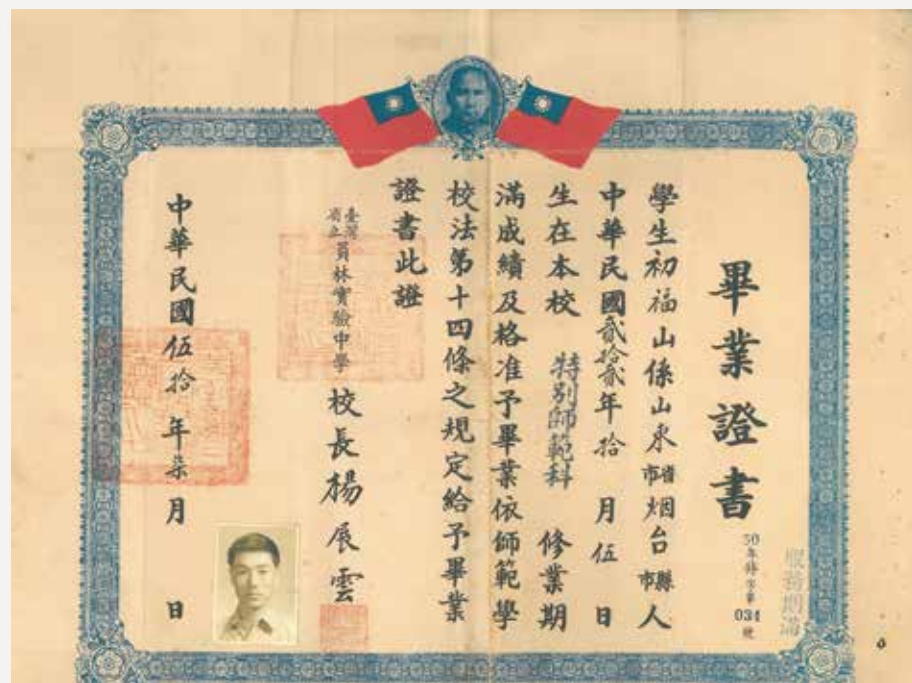 畢業證書
50年
034
號
服務期滿
學生初福山係山東省市烟台縣市人
中華民國貳拾貳年拾月伍日
生在本校 特別師範科 修業期
滿成績及格准予畢業依師範學
校法第十四條之規定給予畢業
證書此證
臺灣省立員林實驗中學校長楊展雲
中華民國伍拾年柒月 日